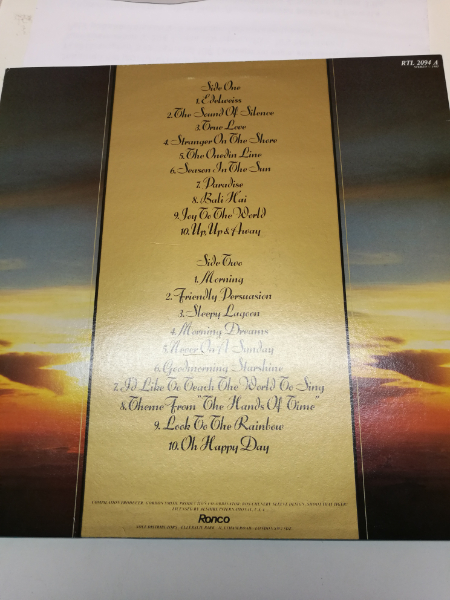 RTL 2094 A
STEREO
Side One
1. Edelweiss
2. The Sound Of Silence
3. True Love
4. Stranger On The Shore
5. The Onedin Line
6. Season In The Sun
7. Paradise
8. Bali Hai
9. Joy To The World
10. Up, Up & Away
Side Two
1. Morning
2. Friendly Persuasion
3. Sleepy Lagoon
4. Morning Dreams
5. Never On A Sunday
6. Goodmorning Starshine
7. I'd Like To Teach The World To Sing
8. Theme From "The Hands Of Time"
9. Look To The Rainbow
10. Oh Happy Day
Ronco